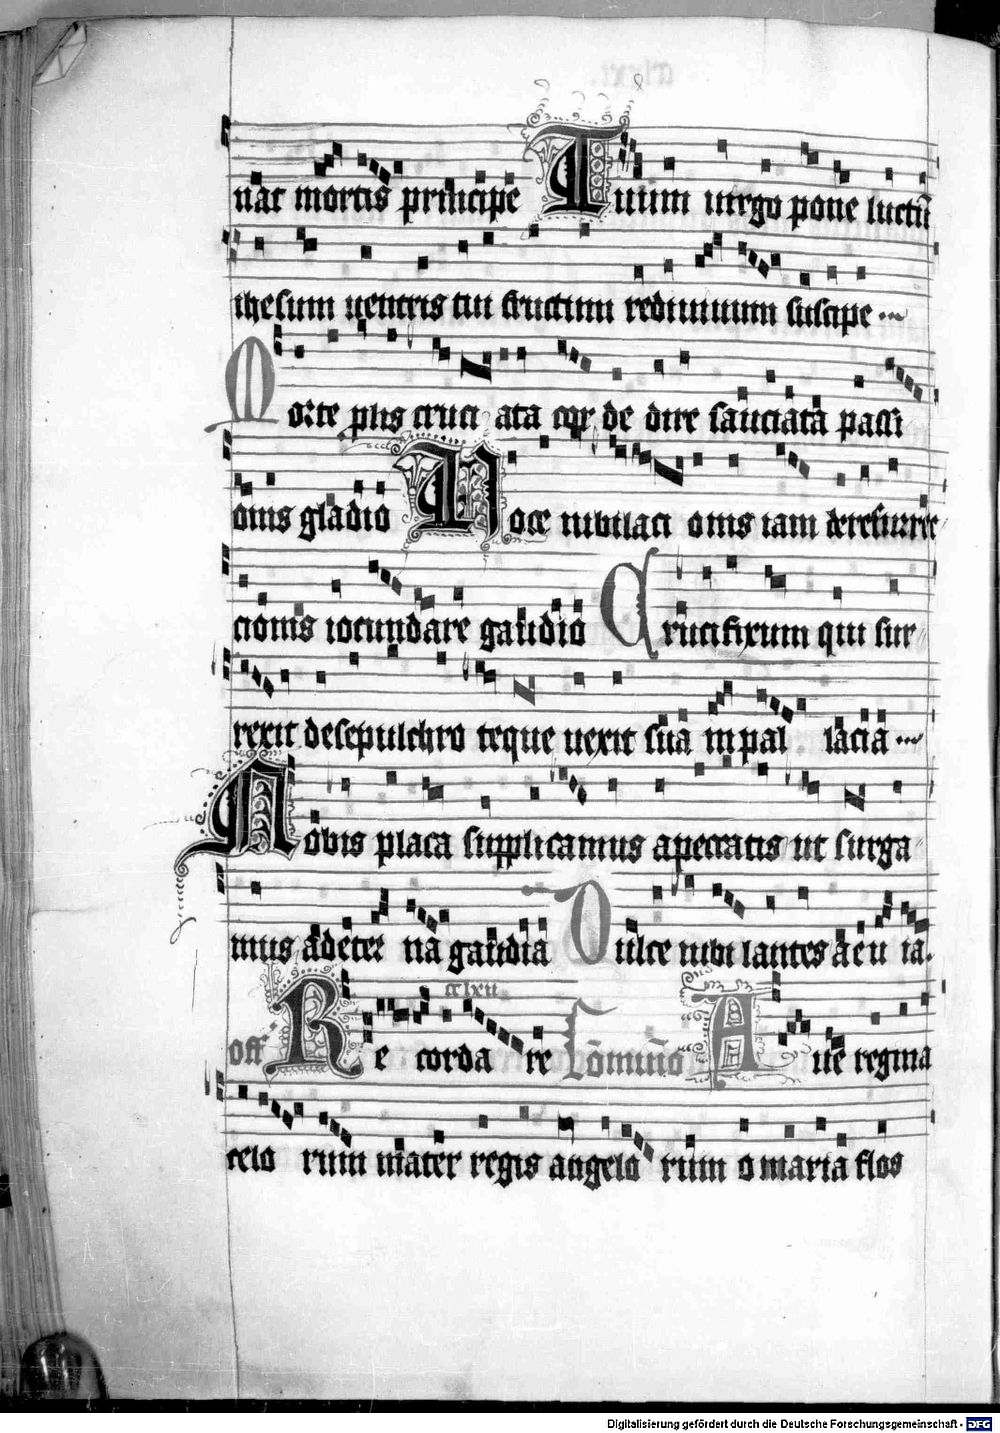 nat mortis principe Tuum uirgo pone luctū
ihesum uentris tui fructum rediuiuum suscipe
Morte plis cruci ata cor de dire sauciata passi
onis gladio Uoce iubilaci onis iam deresurrec
cionis iocundare gaudio Crucifixum qui sur
rexit desepulchro teque uexit sua inpal lacia
Nobis placa supplicamus apeccatis ut surga
mus ad eter na gaudia Dulce iubi lantes aeu ia.
cclxii
off Re corda re Cōmunio Aue regina
celo rum mater regis angelo rum o maria flos
Digitalisierung gefördert durch die Deutsche Forschungsgemeinschaft - DFG